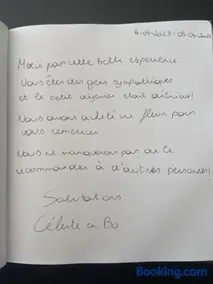 4-04-2023 - 05-04-2023
Merci pour cette belle expérience
Vous êtes des gens sympathiques
et le petit déjeuner était délicieux!
Nous avons acheté une fleurs pour
vous remercier
Nous ne manquerons pas de le
recommander à d'autres personnes!
Salutations
Céleste en Bo
Booking.com